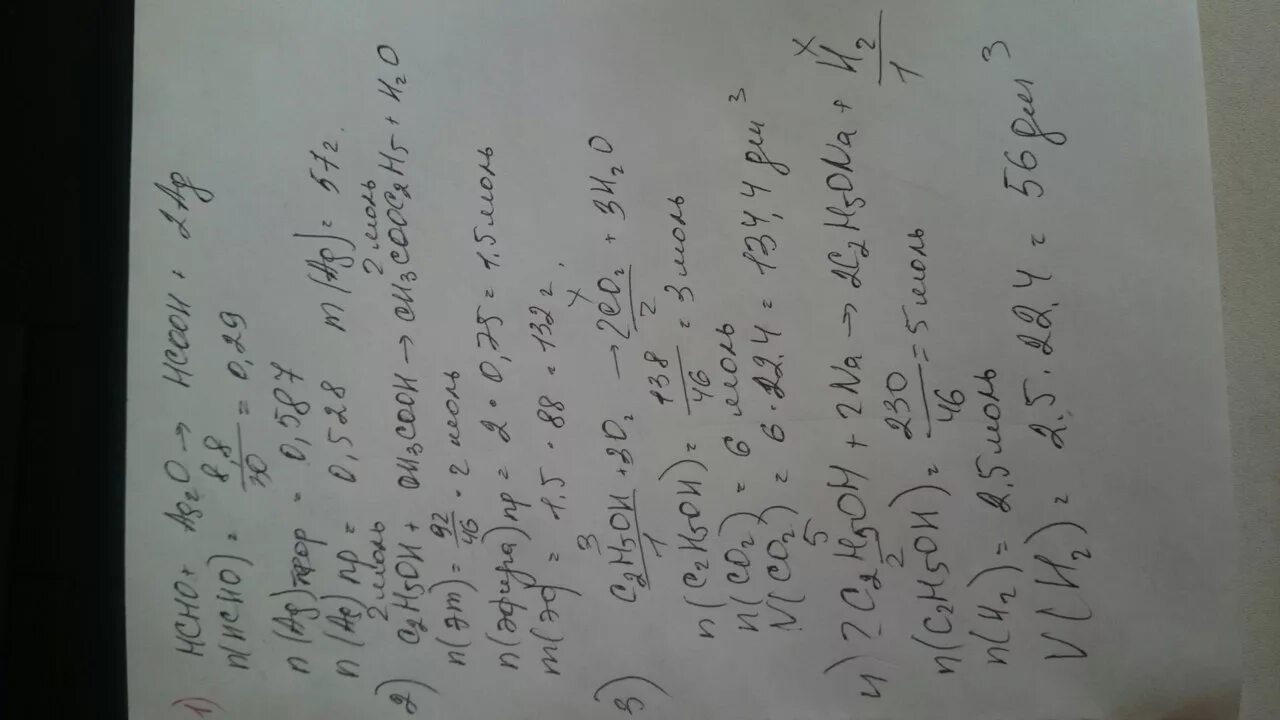 1) HCHO + Ag₂O → HCOOH + 2Ag
n(HCHO) = 8,8/30 = 0,29
n(Ag)теор = 0,587
n(Ag)пр = 0,528 m(Ag) = 57г.
2 моль 2 моль
2) C₂H₅OH + CH₃COOH → CH₃COOC₂H₅ + H₂O
n(эт) = 92/46 = 2 моль
n(эфира)пр = 2 · 0,75 = 1.5 моль
m(эф) = 1.5 · 88 = 132 г.
3 x
3) C₂H₅OH + 3O₂ → 2CO₂ + 3H₂O
1 2
n(C₂H₅OH) = 138/46 = 3 моль
n(CO₂) = 6 моль
V(CO₂) = 6 · 22.4 = 134,4 дм³
5 x
4) 2C₂H₅OH + 2Na → 2C₂H₅ONa + H₂
2 1
n(C₂H₅OH) = 230/46 = 5 моль
n(H₂) = 2.5 моль
V(H₂) = 2.5 · 22.4 = 56 дм³